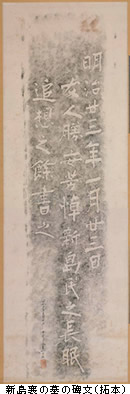 明治廿三年一月廿三日
友人勝安芳悼新島氏之長眠
追想之餘書之
新島襄の墓の碑文(拓本)